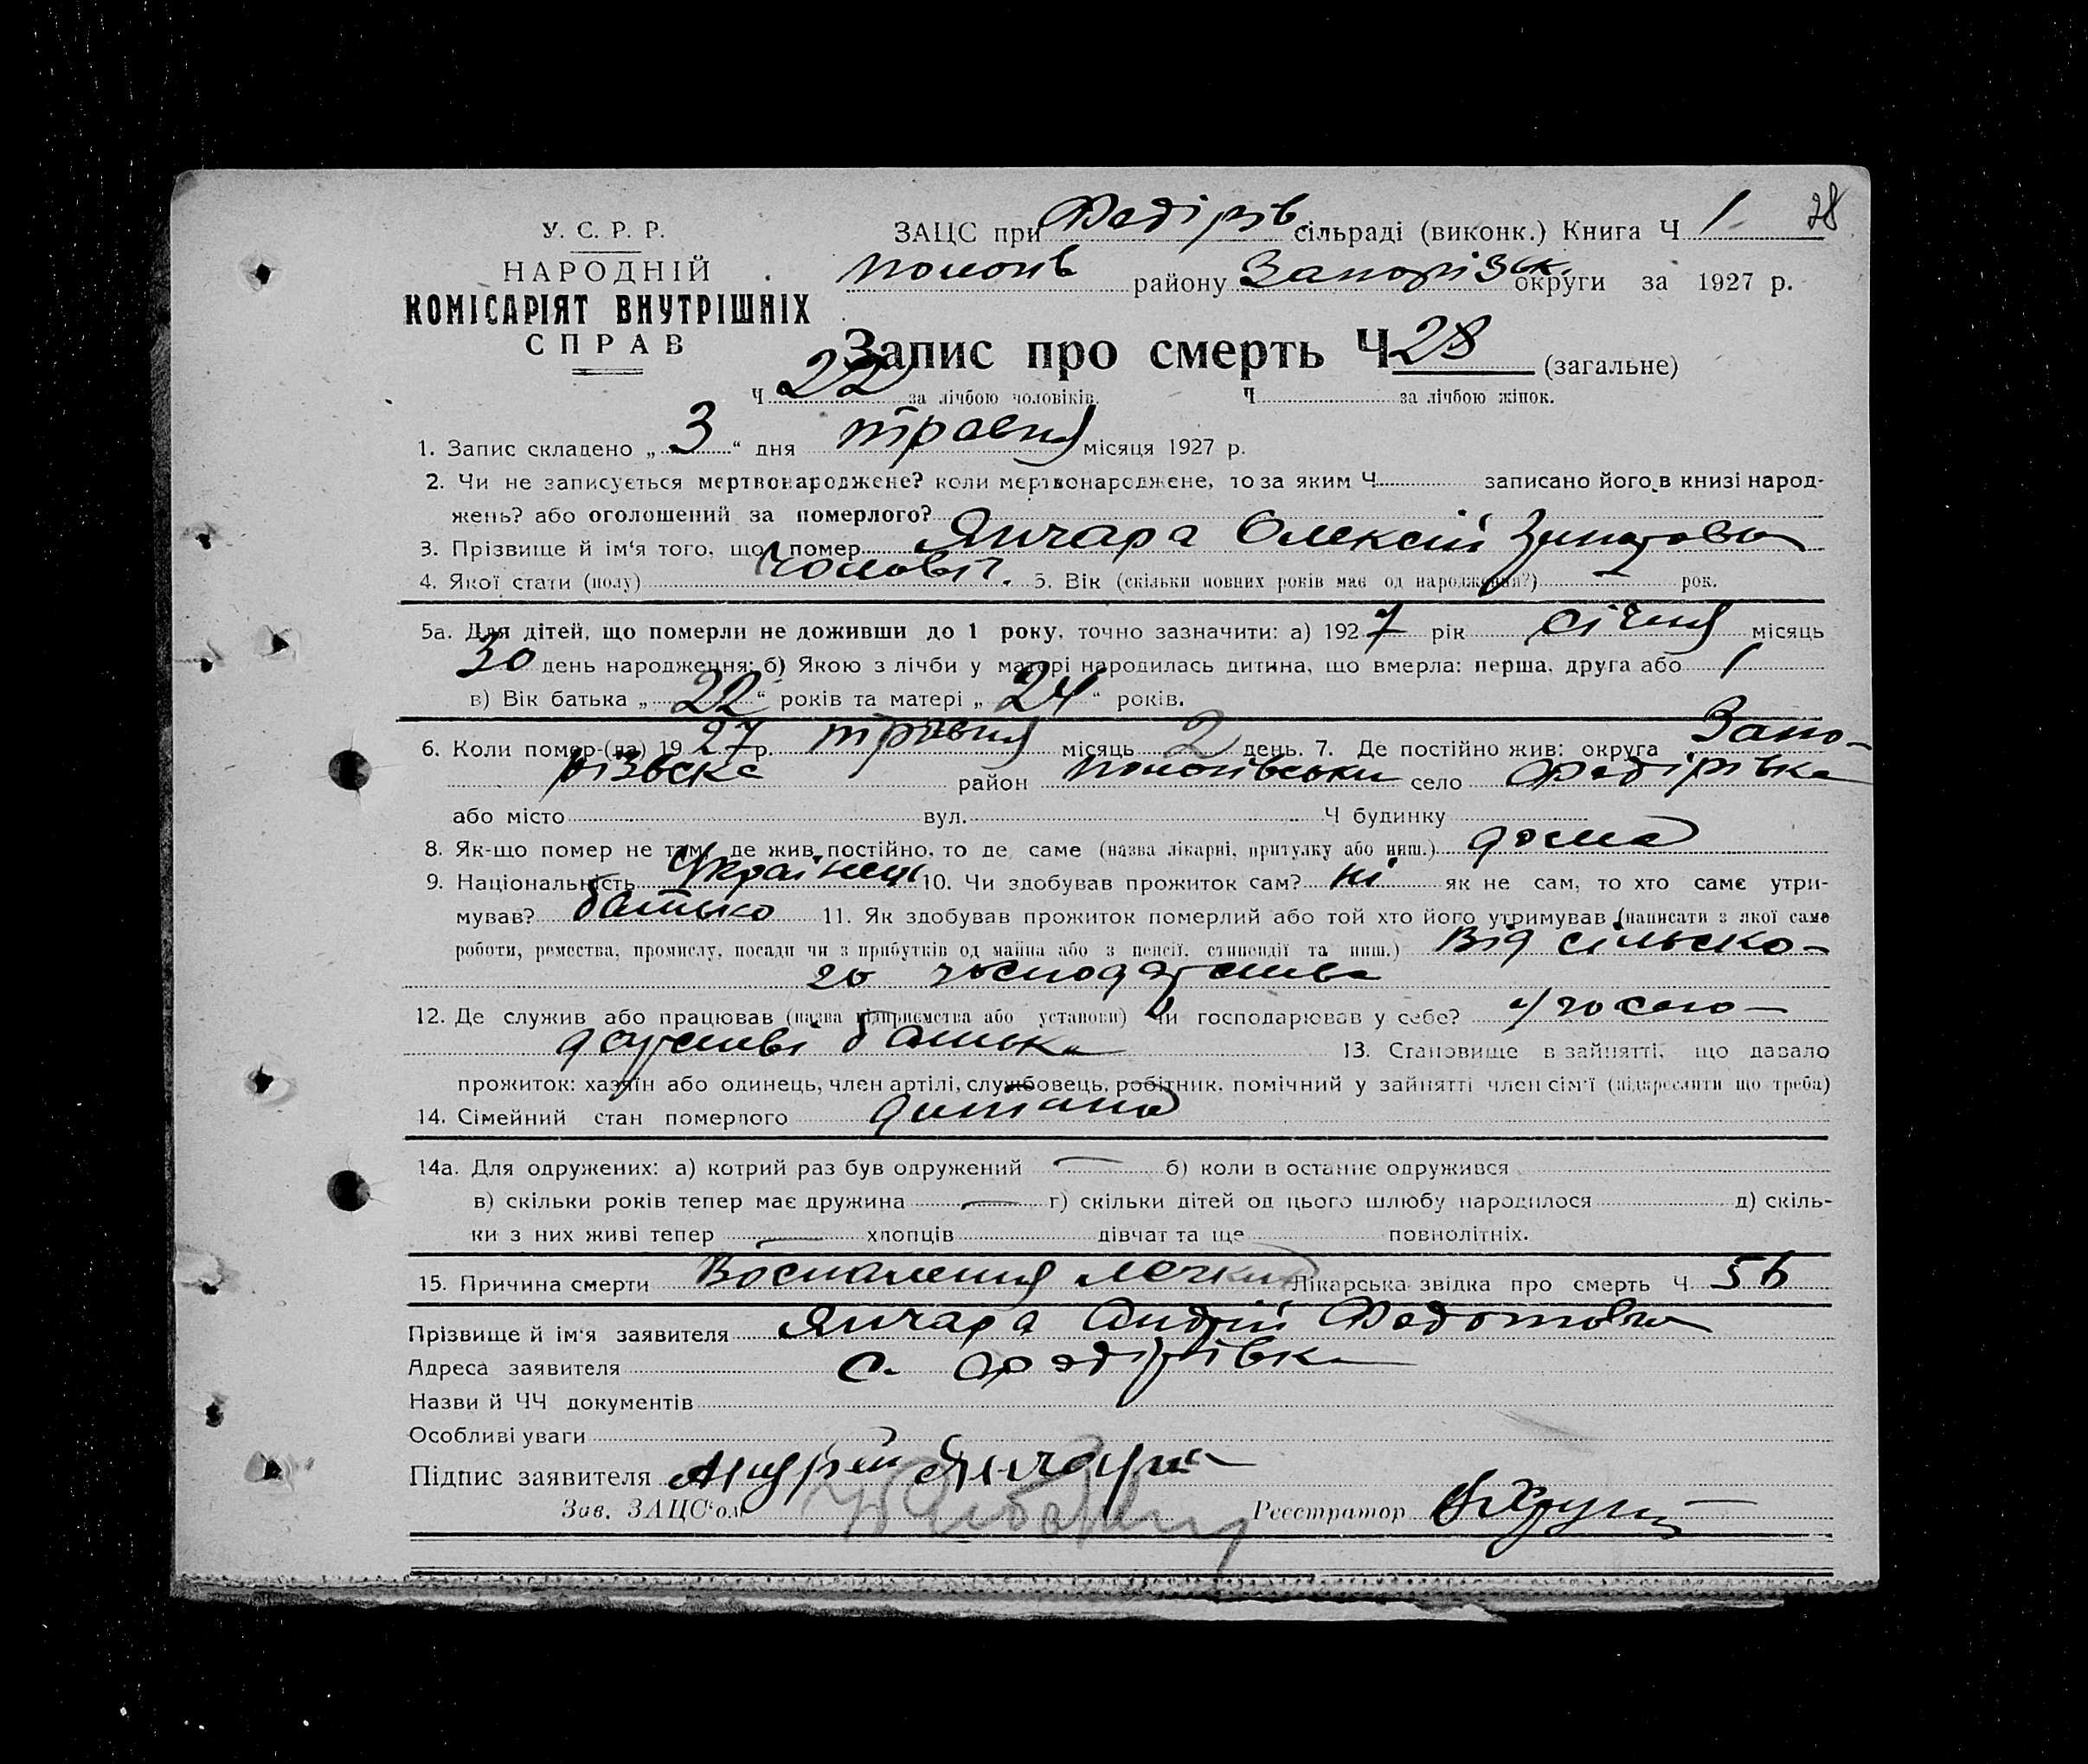 28
ЗАЦС при Федірів. сільраді (виконк.) Книга Ч 1
У. С. Р. Р.
НАРОДНІЙ
КОМІСАРІЯТ ВНУТРІШНІХ
СПРАВ
пологів району Запорізьк. округи за 1927 р.
Запис про смерть Ч 28 (загальне)
Ч 22 за лічбою чоловіків. Ч за лічбою жінок.
1. Запис складено „ 3 “ дня травня місяця 1927 р.
2. Чи не записується мертвонароджене? коли мертвонароджене, то за яким Ч записано його в книзі народ-
жень? або оголошений за померлого?
3. Прізвище й ім'я того, що помер Янчара Олексій
4. Якої стати (полу) чоловіч. 5. Вік (скільки повних років має од народження?) рок.
5а. Для дітей, що померли не доживши до 1 року, точно зазначити: а) 1927 рік січня місяць
30 день народження; б) Якою з лічби у матері народилась дитина, що вмерла: перша, друга або 1
в) Вік батька „ 22 “ років та матері „ 24 “ років.
6. Коли помер-(ла) 1927 р. травня місяць 2 день. 7. Де постійно жив: округа Запо-
різьска район пологівськи село Федірівка
або місто вул. Ч будинку
8. Як-що помер не там, де жив постійно, то де саме (назва лікарні, притулку або инш.) дома
9. Національність Українець 10. Чи здобував прожиток сам? ні як не сам, то хто саме утри-
мував? батько 11. Як здобував прожиток померлий або той хто його утримував (написати з якої саме
роботи, ремества, промислу, посади чи з прибутків од майна або з пенсії, стипендії та инш.) Від сільско-
го господарства
12. Де служив або працював (назва підприємства або установи) чи господарював у себе? у госпо-
дарстві батька 13. Становище в зайнятті, що давало
прожиток: хазяїн або одинець, член артілі, службовець, робітник, помічний у зайнятті член сім'ї (підкреслити що треба)
14. Сімейний стан померлого дитина
14а. Для одружених: а) котрий раз був одружений — б) коли в останнє одружився
в) скільки років тепер має дружина — г) скільки дітей од цього шлюбу народилося д) скіль-
ки з них живі тепер — хлопців дівчат та ще повнолітніх.
15. Причина смерти Воспаления легких Лікарська звідка про смерть Ч 56
Прізвище й ім'я заявителя Янчара Андрій Федотович
Адреса заявителя с. Федірівка
Назви й ЧЧ документів
Особливі уваги
Підпис заявителя Андрей Янчара
Зав. ЗАЦС'ом Реєстратор